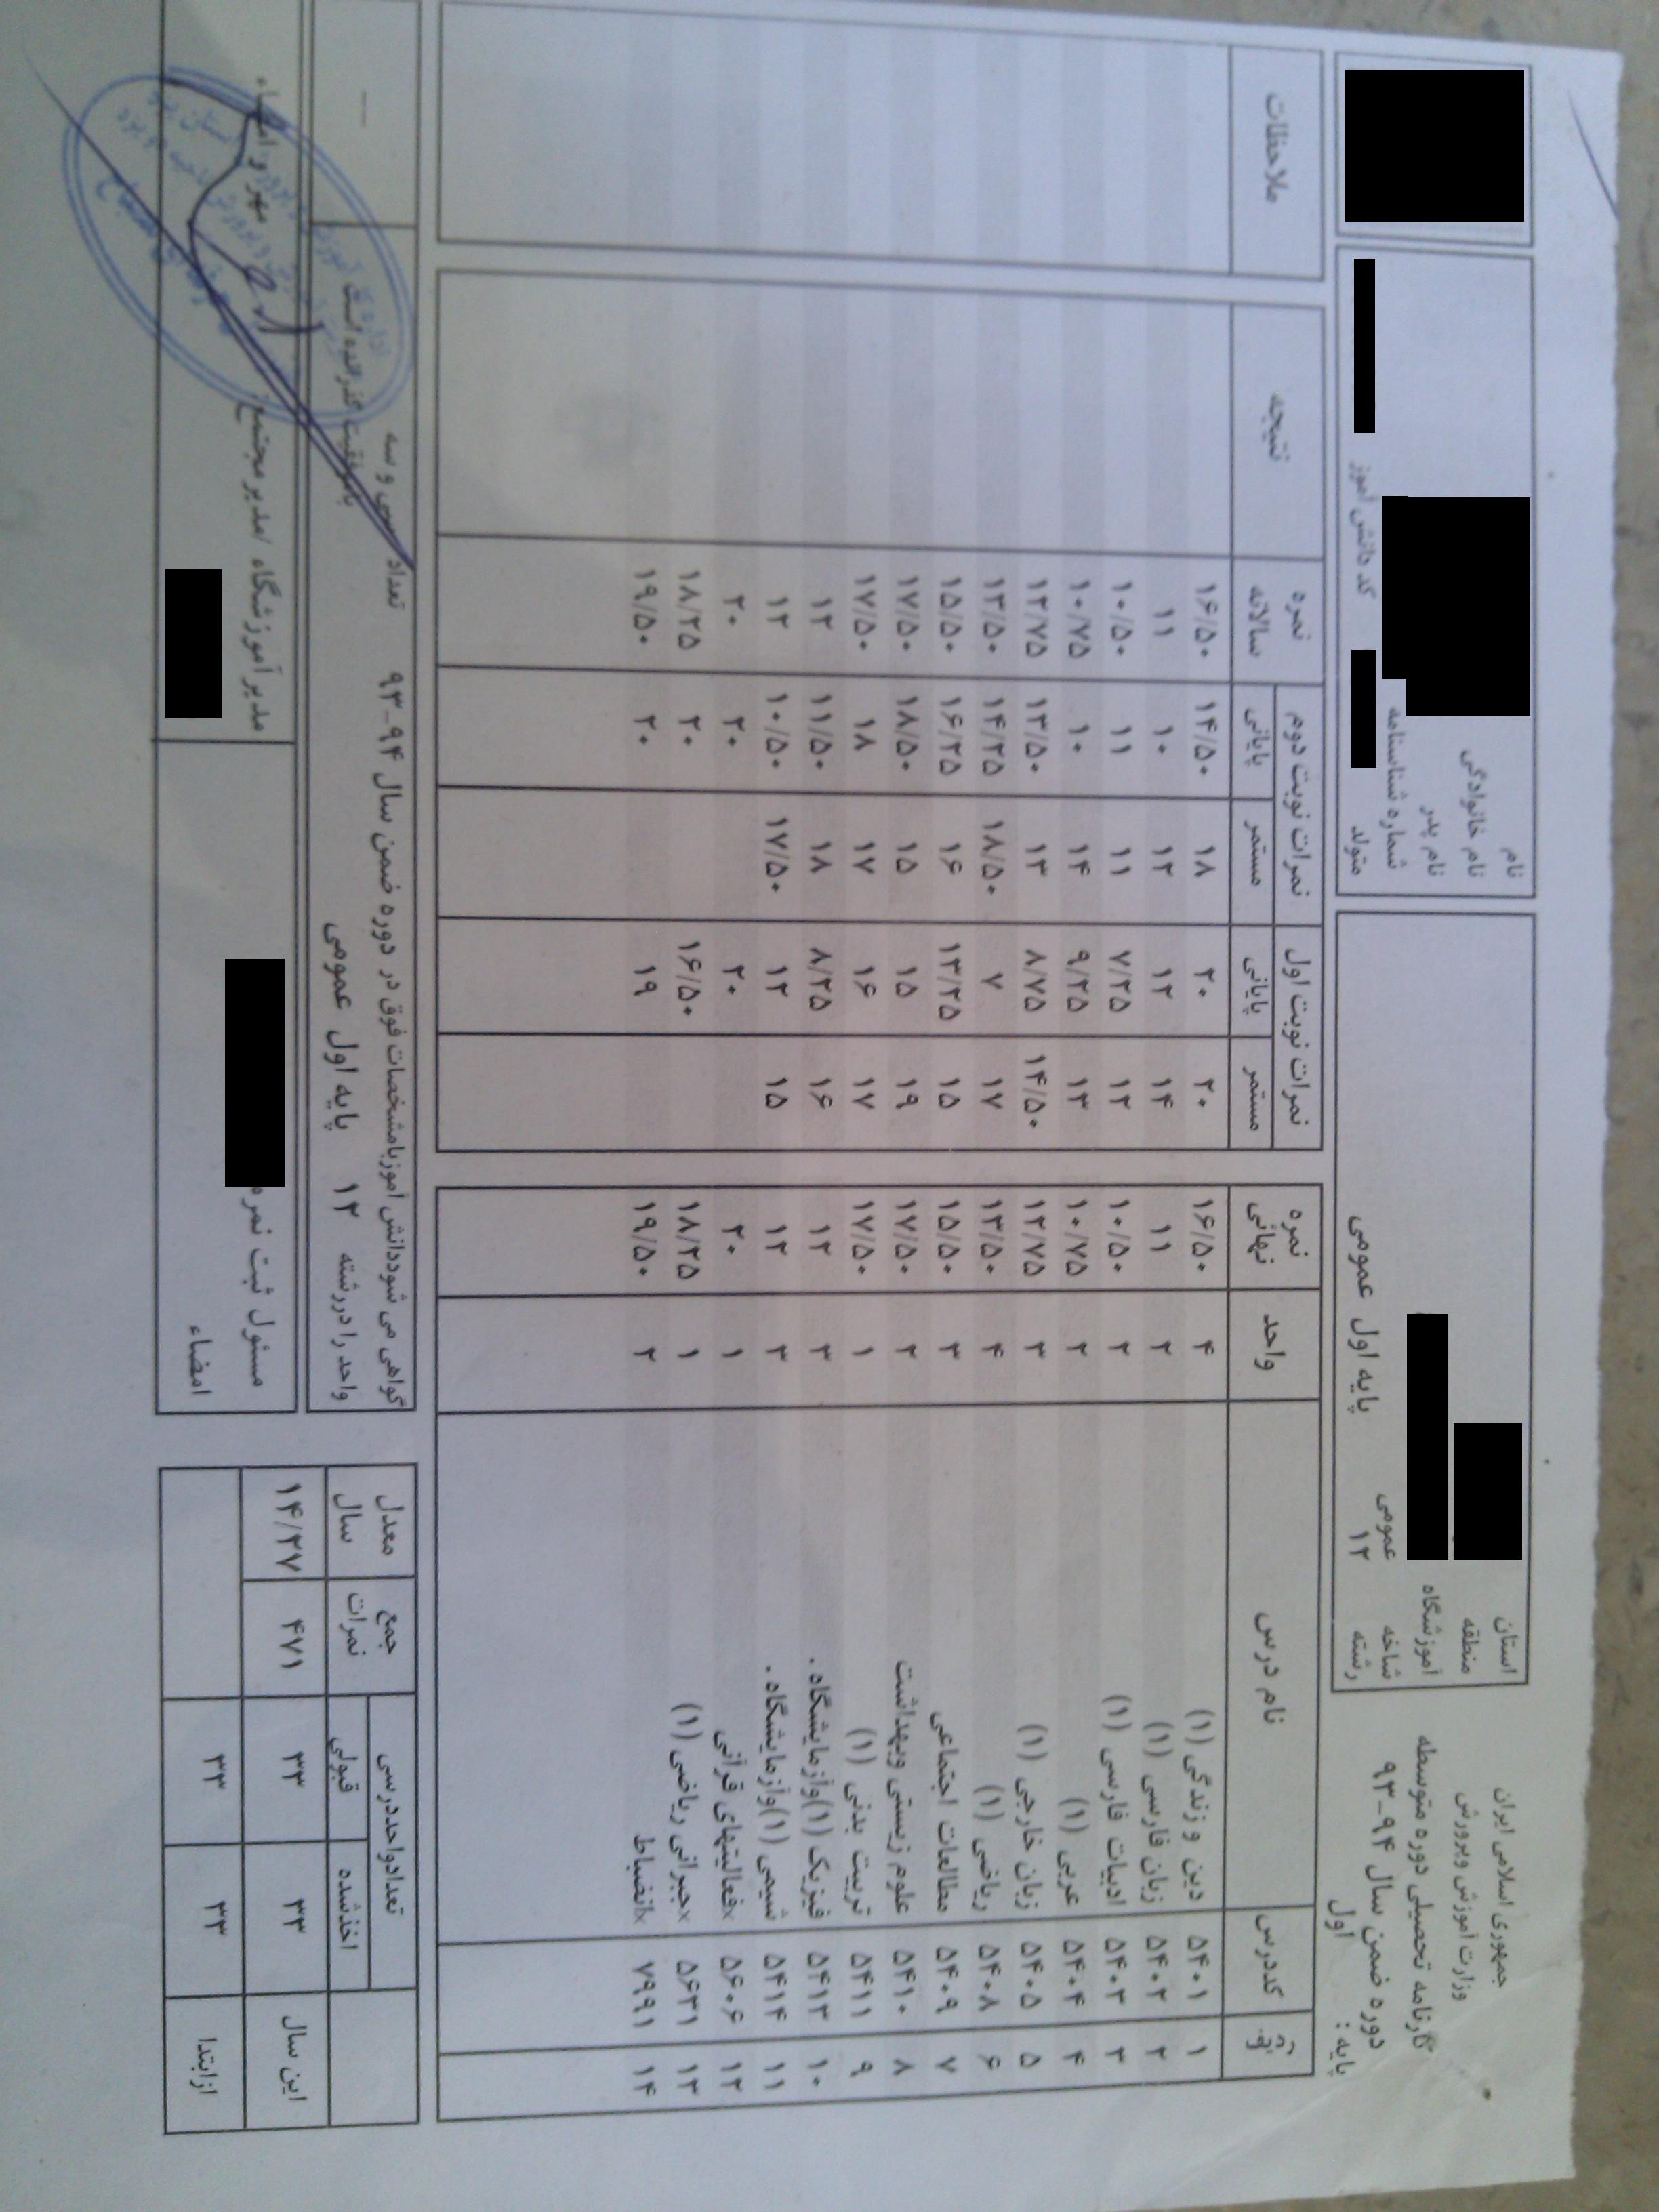 جمهوری اسلامی ایران
وزارت آموزش وپرورش
کارنامه تحصیلی دوره متوسطه
دوره ضمن سال ۹۴-۹۳
پایه : اول
استان
منطقه
آموزشگاه
شاخه عمومی
رشته ۱۲ پایه اول عمومی
نام
نام خانوادگی
نام پدر
شماره شناسنامه
متولد کد دانش آموز
ردیف کددرس نام درس واحد نمره نهائی نمرات نوبت اول نمرات نوبت دوم نمره سالانه نتیجه ملاحظات
مستمر پایانی مستمر پایانی
۱ ۵۴۰۱ دین و زندگی (۱) ۴ ۱۶/۵۰ ۲۰ ۲۰ ۱۸ ۱۴/۵۰ ۱۶/۵۰
۲ ۵۴۰۲ زبان فارسی (۱) ۲ ۱۱ ۱۴ ۱۲ ۱۲ ۱۰ ۱۱
۳ ۵۴۰۳ ادبیات فارسی (۱) ۲ ۱۰/۵۰ ۱۲ ۷/۲۵ ۱۱ ۱۱ ۱۰/۵۰
۴ ۵۴۰۴ عربی (۱) ۲ ۱۰/۷۵ ۱۳ ۹/۲۵ ۱۴ ۱۰ ۱۰/۷۵
۵ ۵۴۰۵ زبان خارجی (۱) ۳ ۱۲/۷۵ ۱۴/۵۰ ۸/۷۵ ۱۳ ۱۳/۵۰ ۱۲/۷۵
۶ ۵۴۰۸ ریاضی (۱) ۴ ۱۳/۵۰ ۱۷ ۷ ۱۸/۵۰ ۱۴/۲۵ ۱۳/۵۰
۷ ۵۴۰۹ مطالعات اجتماعی ۳ ۱۵/۵۰ ۱۵ ۱۳/۲۵ ۱۶ ۱۶/۲۵ ۱۵/۵۰
۸ ۵۴۱۰ علوم زیستی وبهداشت ۲ ۱۷/۵۰ ۱۹ ۱۵ ۱۵ ۱۸/۵۰ ۱۷/۵۰
۹ ۵۴۱۱ تربیت بدنی (۱) ۱ ۱۷/۵۰ ۱۷ ۱۶ ۱۷ ۱۸ ۱۷/۵۰
۱۰ ۵۴۱۳ فیزیک (۱)وآزمایشگاه . ۳ ۱۲ ۱۶ ۸/۲۵ ۱۸ ۱۱/۵۰ ۱۲
۱۱ ۵۴۱۴ شیمی (۱)وآزمایشگاه . ۳ ۱۲ ۱۵ ۱۲ ۱۷/۵۰ ۱۰/۵۰ ۱۲
۱۲ ۵۶۰۶ xفعالیتهای قرآنی ۱ ۲۰ ۲۰ ۲۰ ۲۰
۱۳ ۵۶۳۱ xجبرانی ریاضی (۱) ۱ ۱۸/۲۵ ۱۶/۵۰ ۲۰ ۱۸/۲۵
۱۴ ۷۹۹۱ xانضباط ۲ ۱۹/۵۰ ۱۹ ۲۰ ۱۹/۵۰
تعدادواحددرسی جمع نمرات معدل سال
اخذشده قبولی
این سال ۳۳ ۳۳ ۴۷۱ ۱۴/۲۷
ازابتدا ۳۳ ۳۳
گواهی می شوددانش آموزبامشخصات فوق در دوره ضمن سال ۹۴-۹۳ تعداد سی و سه
واحد را دررشته ۱۲ پایه اول عمومی باموفقیت گذرانده است
مسئول ثبت نمره
امضاء
مدیر آموزشگاه /مدیر مجتمع/
مهر و امضاء